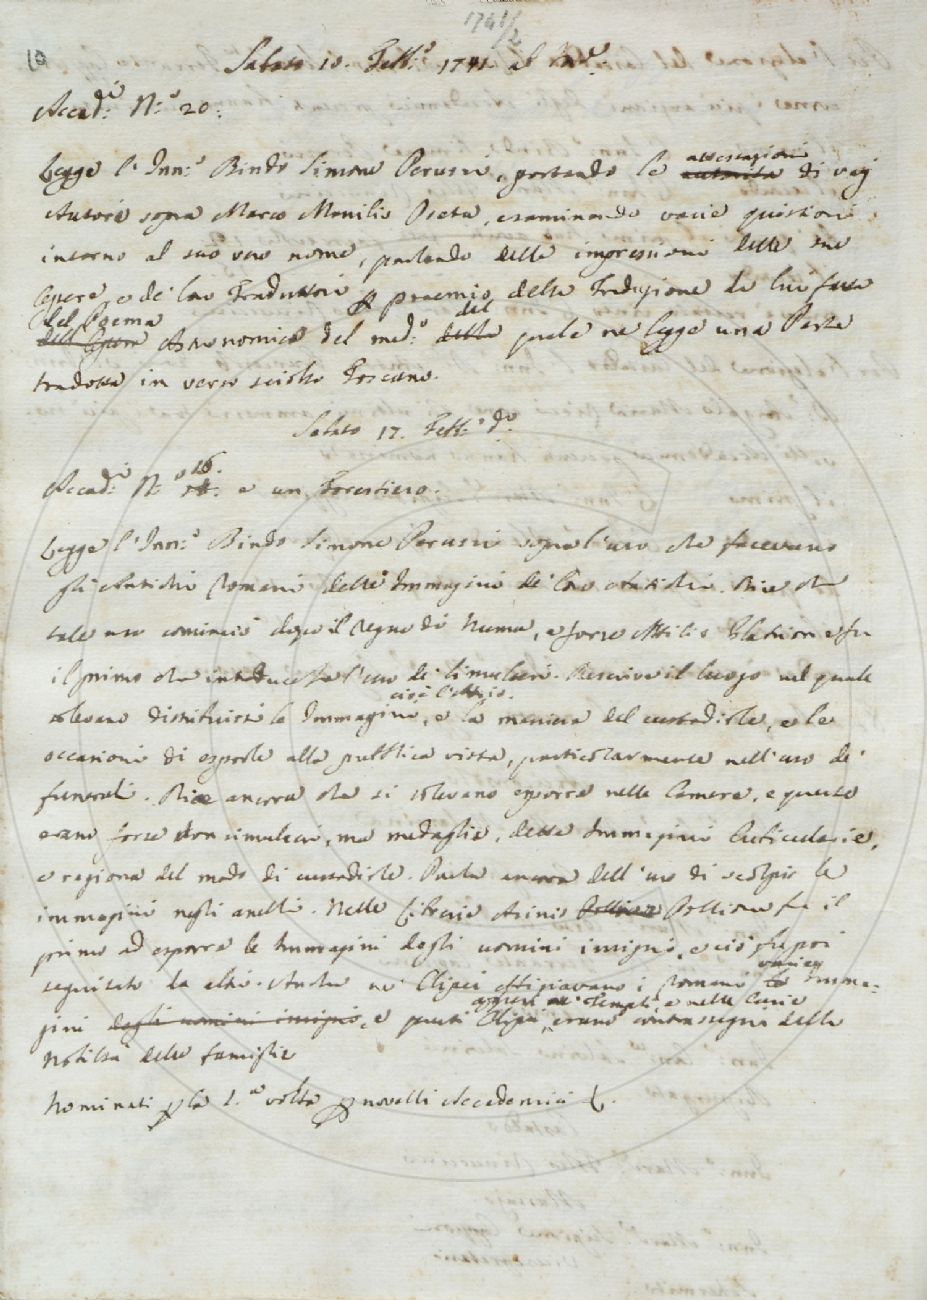 1741/2
10
Sabato 10. Febb.º 1741. al
Accad.ci N.º 20:
Legge l'Inn.º Bindo Simone Peruzzi, portando le attestazioni autorità di varj
Autori sopra Marco Manilio Poeta, esaminando varie quistioni
intorno al suo vero nome, parlando delle impressioni delle sue
Opere, e de' loro Traduttori p proemio della Traduzione da lui fatta
del Poema dell'Opera Astronomico del med.º del della quale ne legge una Parte
tradotta in verso sciolto Toscano.
Sabato 17. Febb.º d.º
Accad.ci N.º 16. e un Forestiero.
Legge l'Inn.º Bindo Simone Peruzzi sopra l'uso che facevano
gli Antichi Romani delle Immagini de' loro Antichi. Dice che
tale uso cominciò dopo il Regno di Numa, e forse Attilio fu
il primo che introducesse l'uso de' simulacri. Descrive il luogo nel quale
solevano distribuirsi le Immagini, cioè l'Atrio, e la maniera del custodirle, e le
occasioni di esporle alla pubblica vista, particolarmente nell'uso de'
funerali. Dice ancora che si solevano esporre nelle Camere, e queste
erano forse non simulacri, ma medaglie, dette Immagini Cubicularie,
e ragiona del modo di custodirle. Parla ancora dell'uso di scolpir le
immagini negli anelli. Nelle Librerie Asinio Pollione fu il
primo ad esporre le Immagini degli uomini insigni, e ciò fu poi
seguitato da altri. Anche ne' Clipei effigiavano i Romani varie Imma-
gini degli uomini insigni, e questi Clipei appesi ne' Templi, e nelle Curie erano contrassegni della
Nobiltà delle famiglie
Nominati p la 1.a volta p novelli Accademici